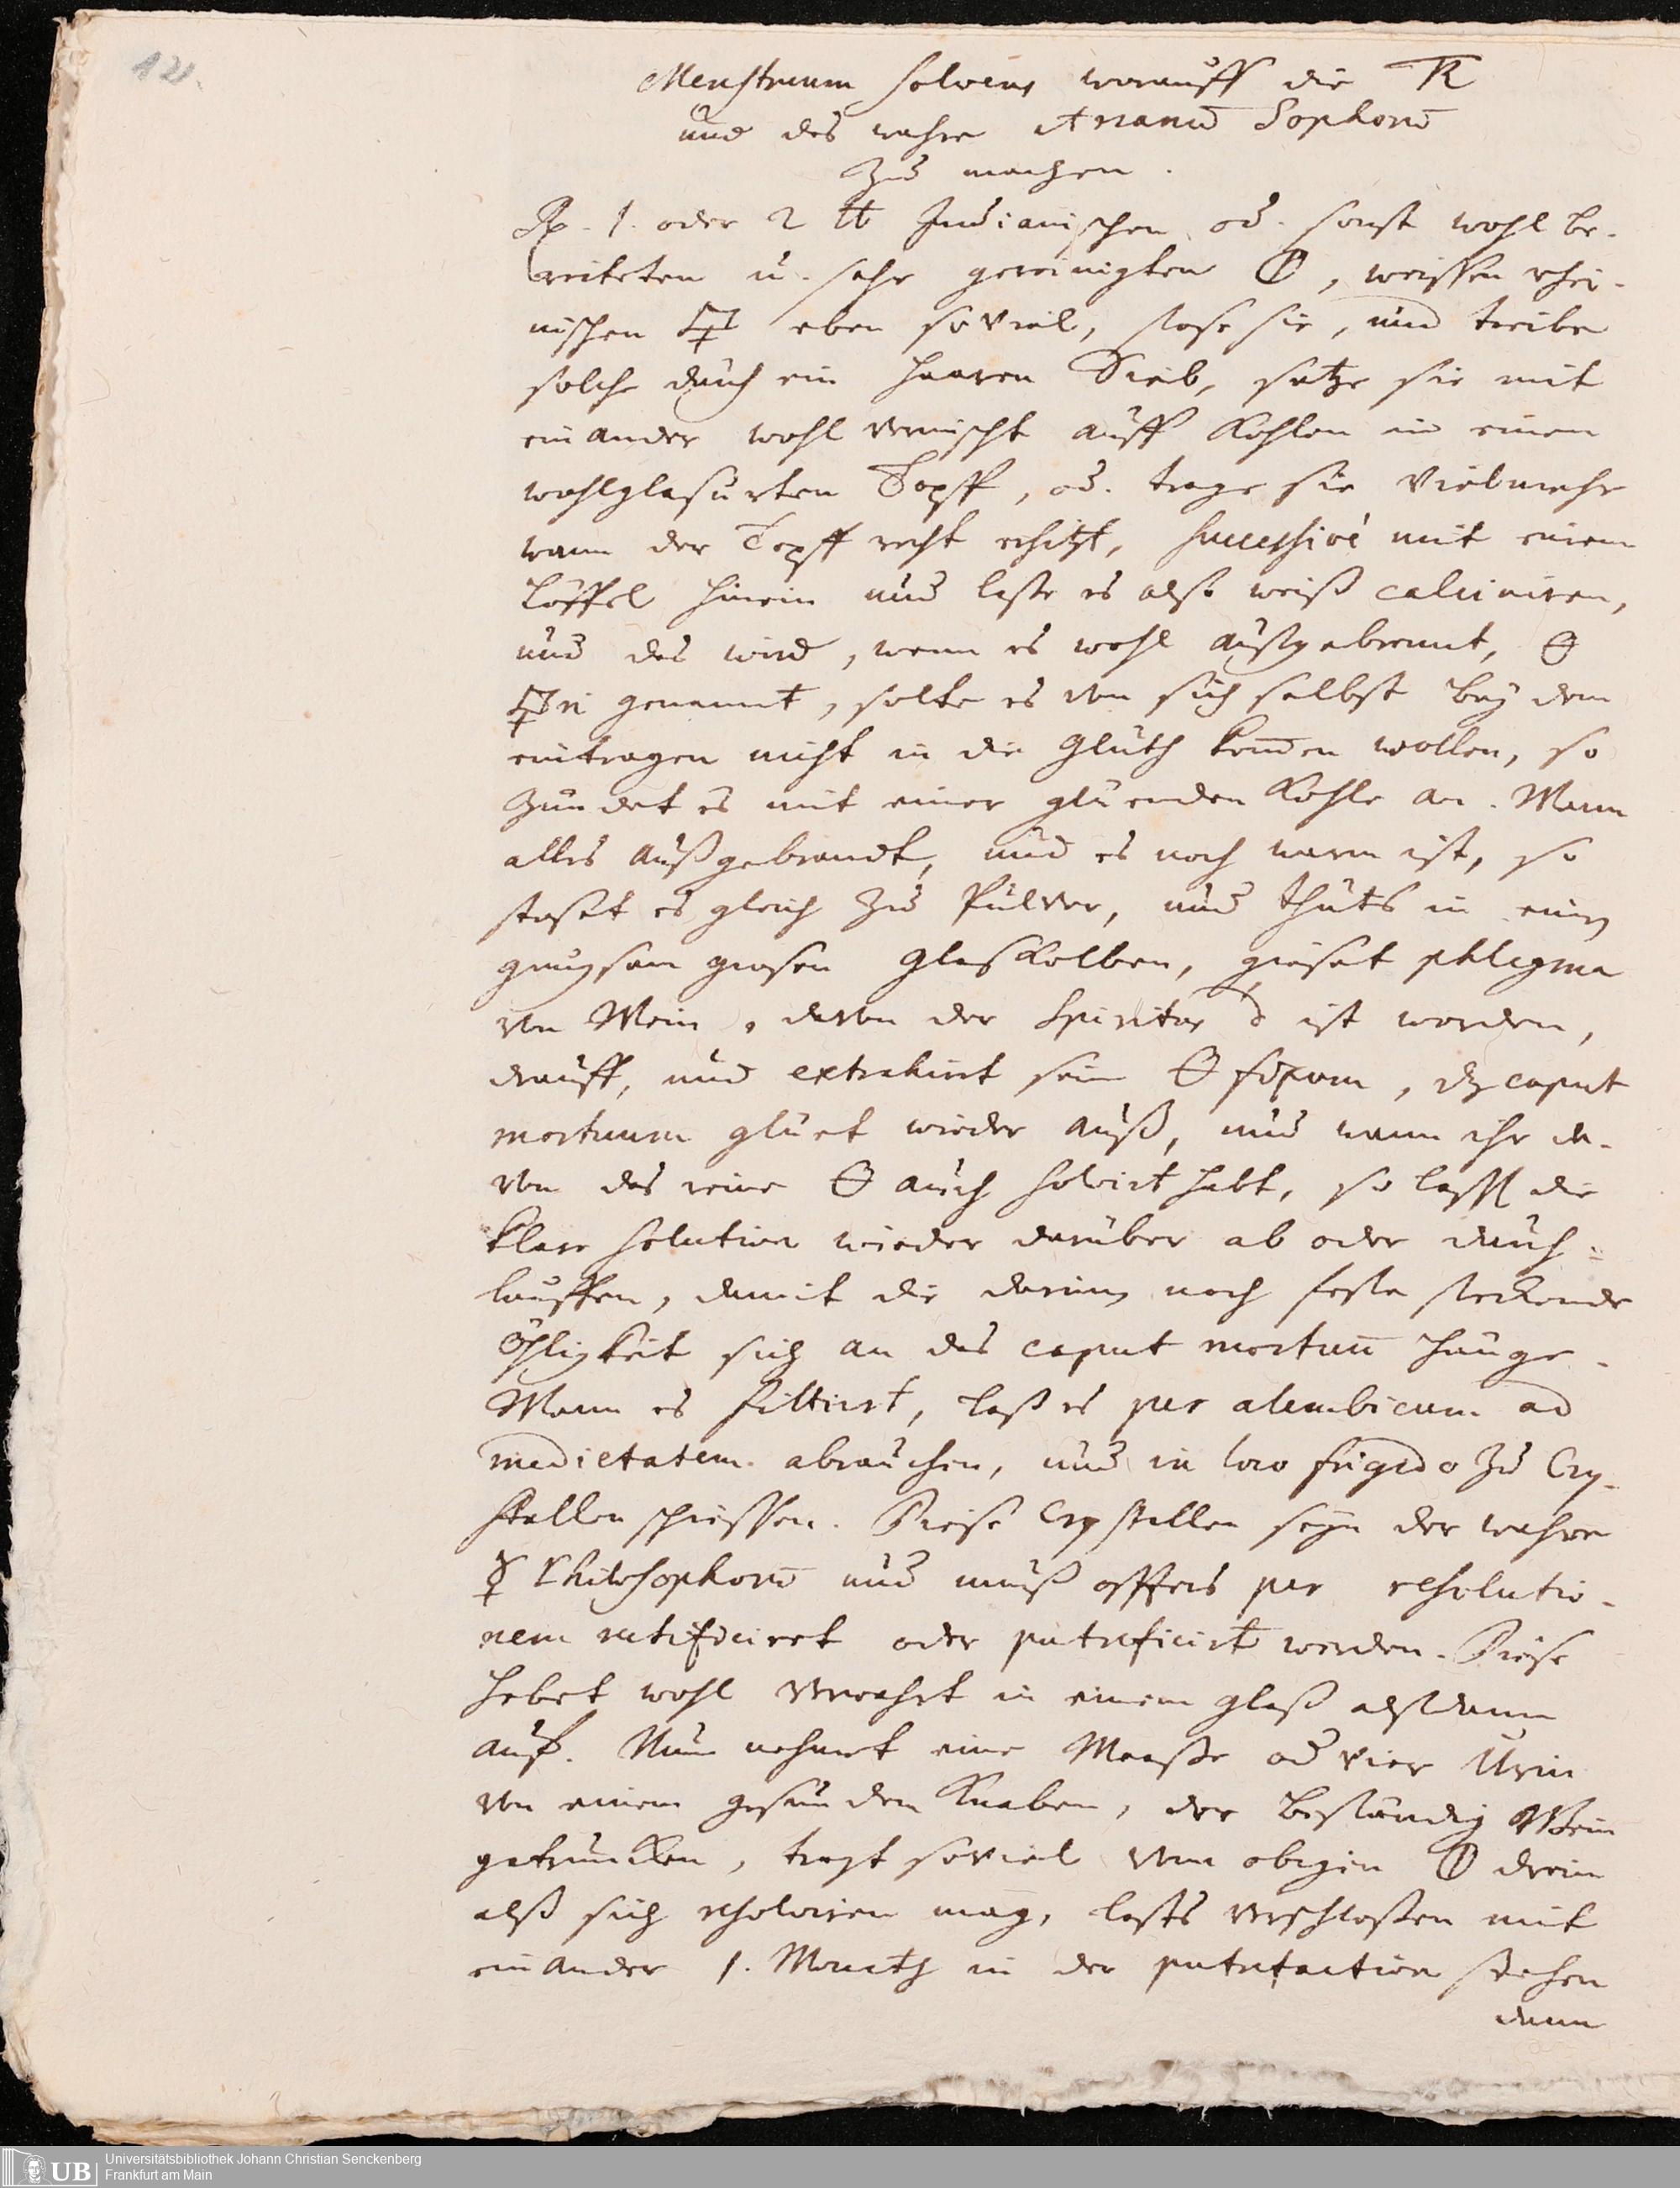 121.
Menstruum solvens worauff die TR
und das wahre Arcanū Sophorū
Zu machen.
Rp. 1. oder 2 ℔ Indianischen od. sonst wohl be-
reiteten u. sehr gereinigten 🜕, weissen rhei-
nischen 🜿 eben soviel, stose sie, und treibe
solche durch ein haaren Sieb, setze sie mit
einander wohl vermischt auff Kohlen in einen
wohlglasurten Topff, od. trage sie vielmehr
wann der Topff recht erhitzt, successivè mit einem
Löffel hinein und laße es also weiß calciniren,
und das wird, wenn es wohl außgebrennt, 🜔
🜿ri genannt, solte es von sich selbst bey dem
eintragen nicht in die Gluth kom̄en wollen, so
zündet es mit einer glüenden Kohle an. Wann
alles außgebrandt, und es noch warm ist, so
stoset es gleich zu Pulver, und thuts in einen
gnugsam grosen Glaskolben, gieset phlegma
von Wein, davon der Spiritus d ist worden,
drauff, und extrahirt sein 🜔 fixum, dz caput
mortuum glüet wieder auß, und wann ihr da-
von das reine 🜔 auch solvirt habt, so lasst die
klare solution wieder darüber ab oder durch-
lauffen, damit die darinnen noch feste steckende
Öhligkeit sich an das caput mortuū hänge.
Wann es filtrirt, laß es per alembicum ad
medietatem abrauchen, und in loco frigido zu Cry-
stallen schiessen. Diese Crystallen seyn der wahre
☿ Philosophorū und muß offters per resolutio-
nem rectificiret oder putreficirt werden. Diese
hebet wohl verwahrt in einem glaß alsdann
auf. Nun nehmet eine Maaße od vier Urin
von einem gesunden Knaben, der beständig Wein
getruncken, tragt soviel vom obigen 🜕 drein
alß sich resolviren mag, lasts verschloßen mit
einander 1. Monath in der putrefaction stehen
dann
Universitätsbibliothek Johann Christian Senckenberg
Frankfurt am Main
UB